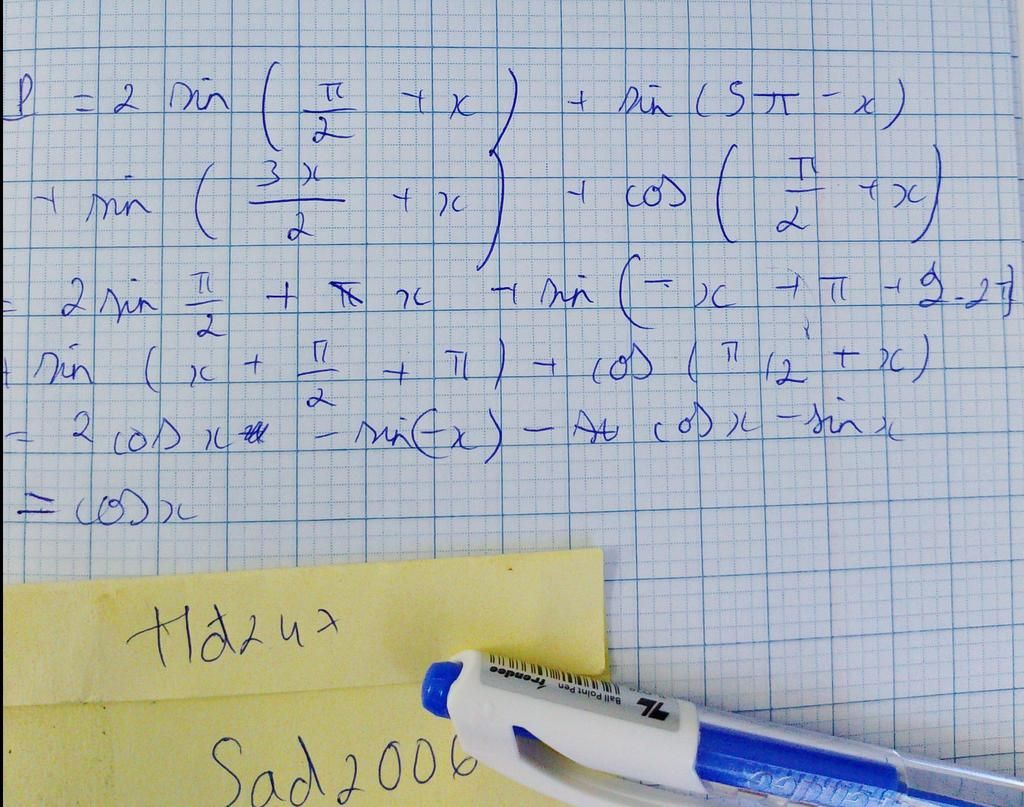 P = 2 sin (π/2 + x) + sin (5π - x)
+ sin (3x/2 + x) + cos (π/2 + x)
= 2 sin π/2 + x + sin (- x + π + 2.2π)
+ sin (x + π/2 + π) + cos (π/2 + x)
= 2 cos x - sin(-x) - cos x - sin x
= cos x
Hd247
Sad2006
TL
Ball Point Pen Trendee